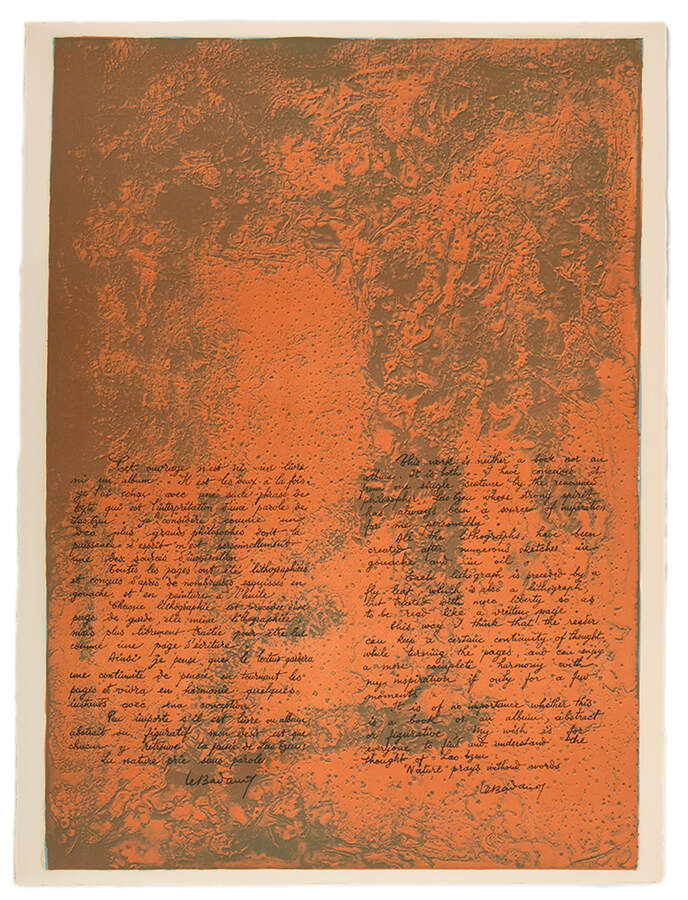 Cet ouvrage n'est ni un livre
ni un album. Il est les deux à la fois.
Je l'ai conçu avec une seule phrase de
texte qui est l'interprétation d'une parole de
Lao-tzeu. Je considère comme un
des plus grands philosophes dont la
puissance d'esprit m'est personnellement
une des sources d'inspiration.
Toutes les pages ont été lithographiées
et conçues d'après de nombreuses esquisses en
gouache et en peinture à l'huile.
Chaque lithographie est précédée d'une
page de garde elle même lithographiée
mais plus librement traitée pour être lue
comme une page d'écriture.
Ainsi je pense que le lecteur gardera
une continuité de pensée en tournant les
pages et vivra en harmonie quelques
instants avec ma conception.
Peu importe s'il est livre ou album,
abstrait ou figuratif mon désir est que
chacun y retrouve la pensée de Lao-tzeu
La nature prie sans parole
LeBadang
This work is neither a book nor an
album. It is both. I have conceived it
from one single sentence by the renowned
philosopher Lao tzeu whose strong spirit
has always been a source of inspiration
for me personnally.
All the lithographs have been
created after numerous sketches in
gouache and in oil.
Each lithograph is preceded by a
fly leaf which is also a lithograph,
but treated with more liberty so as
to be read like a written page.
This way I think that the reader
can keep a certain continuity of thought
while turning the pages and can enjoy
a more complete harmony with
my inspiration if only for a few
moments.
It is of no importance whether this
is a book or an album, abstract
or figurative. My wish is for
everyone to feel and understand the
thought of Lao-tzeu
"Nature prays without words
LeBadang